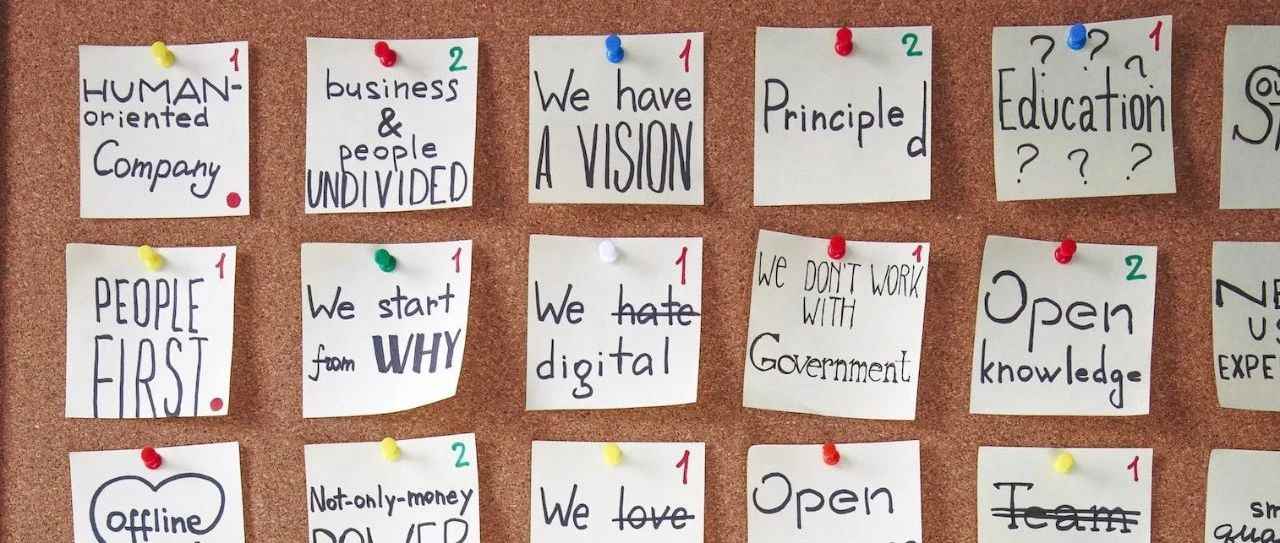 HUMAN-
oriented
Company
1
business
&
people
UNDIVIDED
2
We have
A VISION
1
Principle
d
2
? ? ?
Education
? ? ?
1
PEOPLE
FIRST.
1
We start
from WHY
1
We hate
digital
1
We DON'T WORK
WITH
Government
1
Open
knowledge
2
offline
Not-only-money
POWER
2
We love
1
Open
Team
1